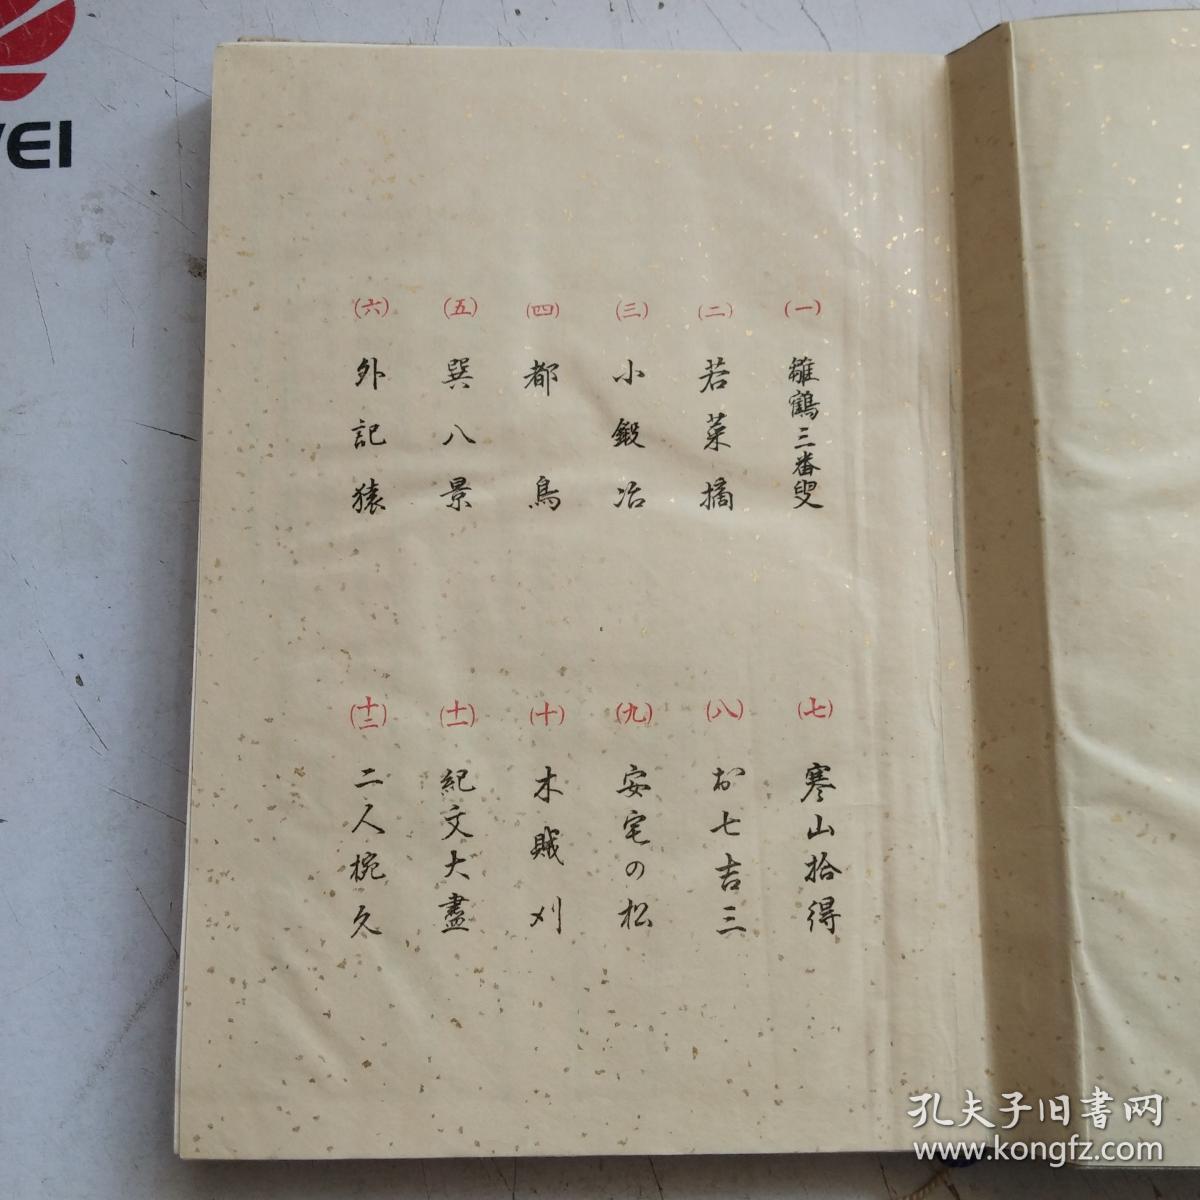 (一) 雛鶴三番叟
(二) 若菜摘
(三) 小鍛冶
(四) 都鳥
(五) 巽八景
(六) 外記猿
(七) 寒山拾得
(八) お七吉三
(九) 安宅の松
(十) 木賊刈
(十一) 紀文大盡
(十二) 二人椀久
WEI
孔夫子旧書网
www.kongfz.com